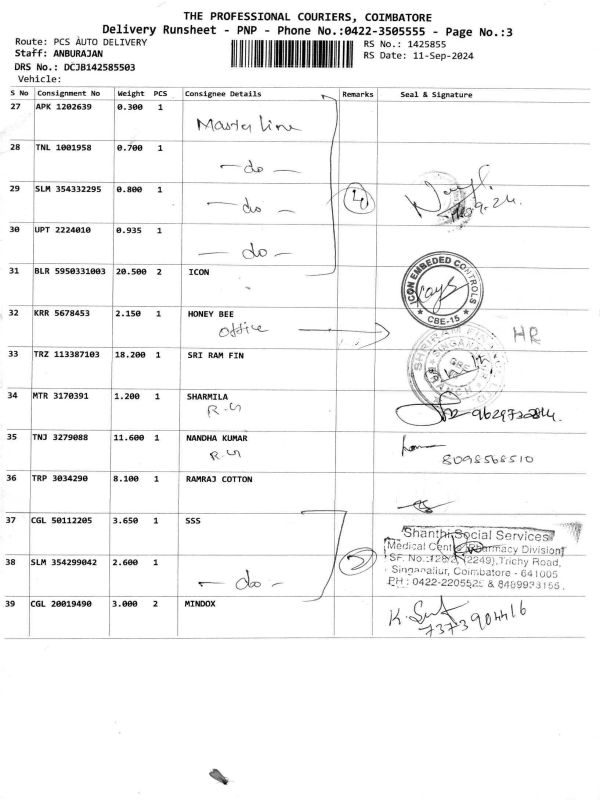 THE PROFESSIONAL COURIERS, COIMBATORE
Delivery Runsheet - PNP - Phone No.:0422-3505555 - Page No.:3
Route: PCS AUTO DELIVERY RS No.: 1425855
Staff: ANBURAJAN RS Date: 11-Sep-2024
DRS No.: DCJB142585503
Vehicle:
S No Consignment No Weight PCS Consignee Details Remarks Seal & Signature
27 APK 1202639 0.300 1
Master line
28 TNL 1001958 0.700 1
- do -
29 SLM 354332295 0.800 1
- do - 4
30 UPT 2224010 0.935 1
- do -
31 BLR 5950331003 20.500 2 ICON
ICON EMBEDED CONTROLS
* CBE-15 *
32 KRR 5678453 2.150 1 HONEY BEE
office HR
33 TRZ 113387103 18.200 1 SRI RAM FIN
34 MTR 3170391 1.200 1 SHARMILA
R.S
35 TNJ 3279088 11.600 1 NANDHA KUMAR
R.S 8098568510
36 TRP 3034290 8.100 1 RAMRAJ COTTON
37 CGL 50112205 3.650 1 SSS
Shanthi Social Services
Medical Centre (Pharmacy Division)
(2249), Trichy Road,
38 SLM 354299042 2.600 1
- do - 2
Singanallur, Coimbatore - 641005
PH : 0422-2205525 &
39 CGL 20019490 3.000 2 MINDOX
7373904416